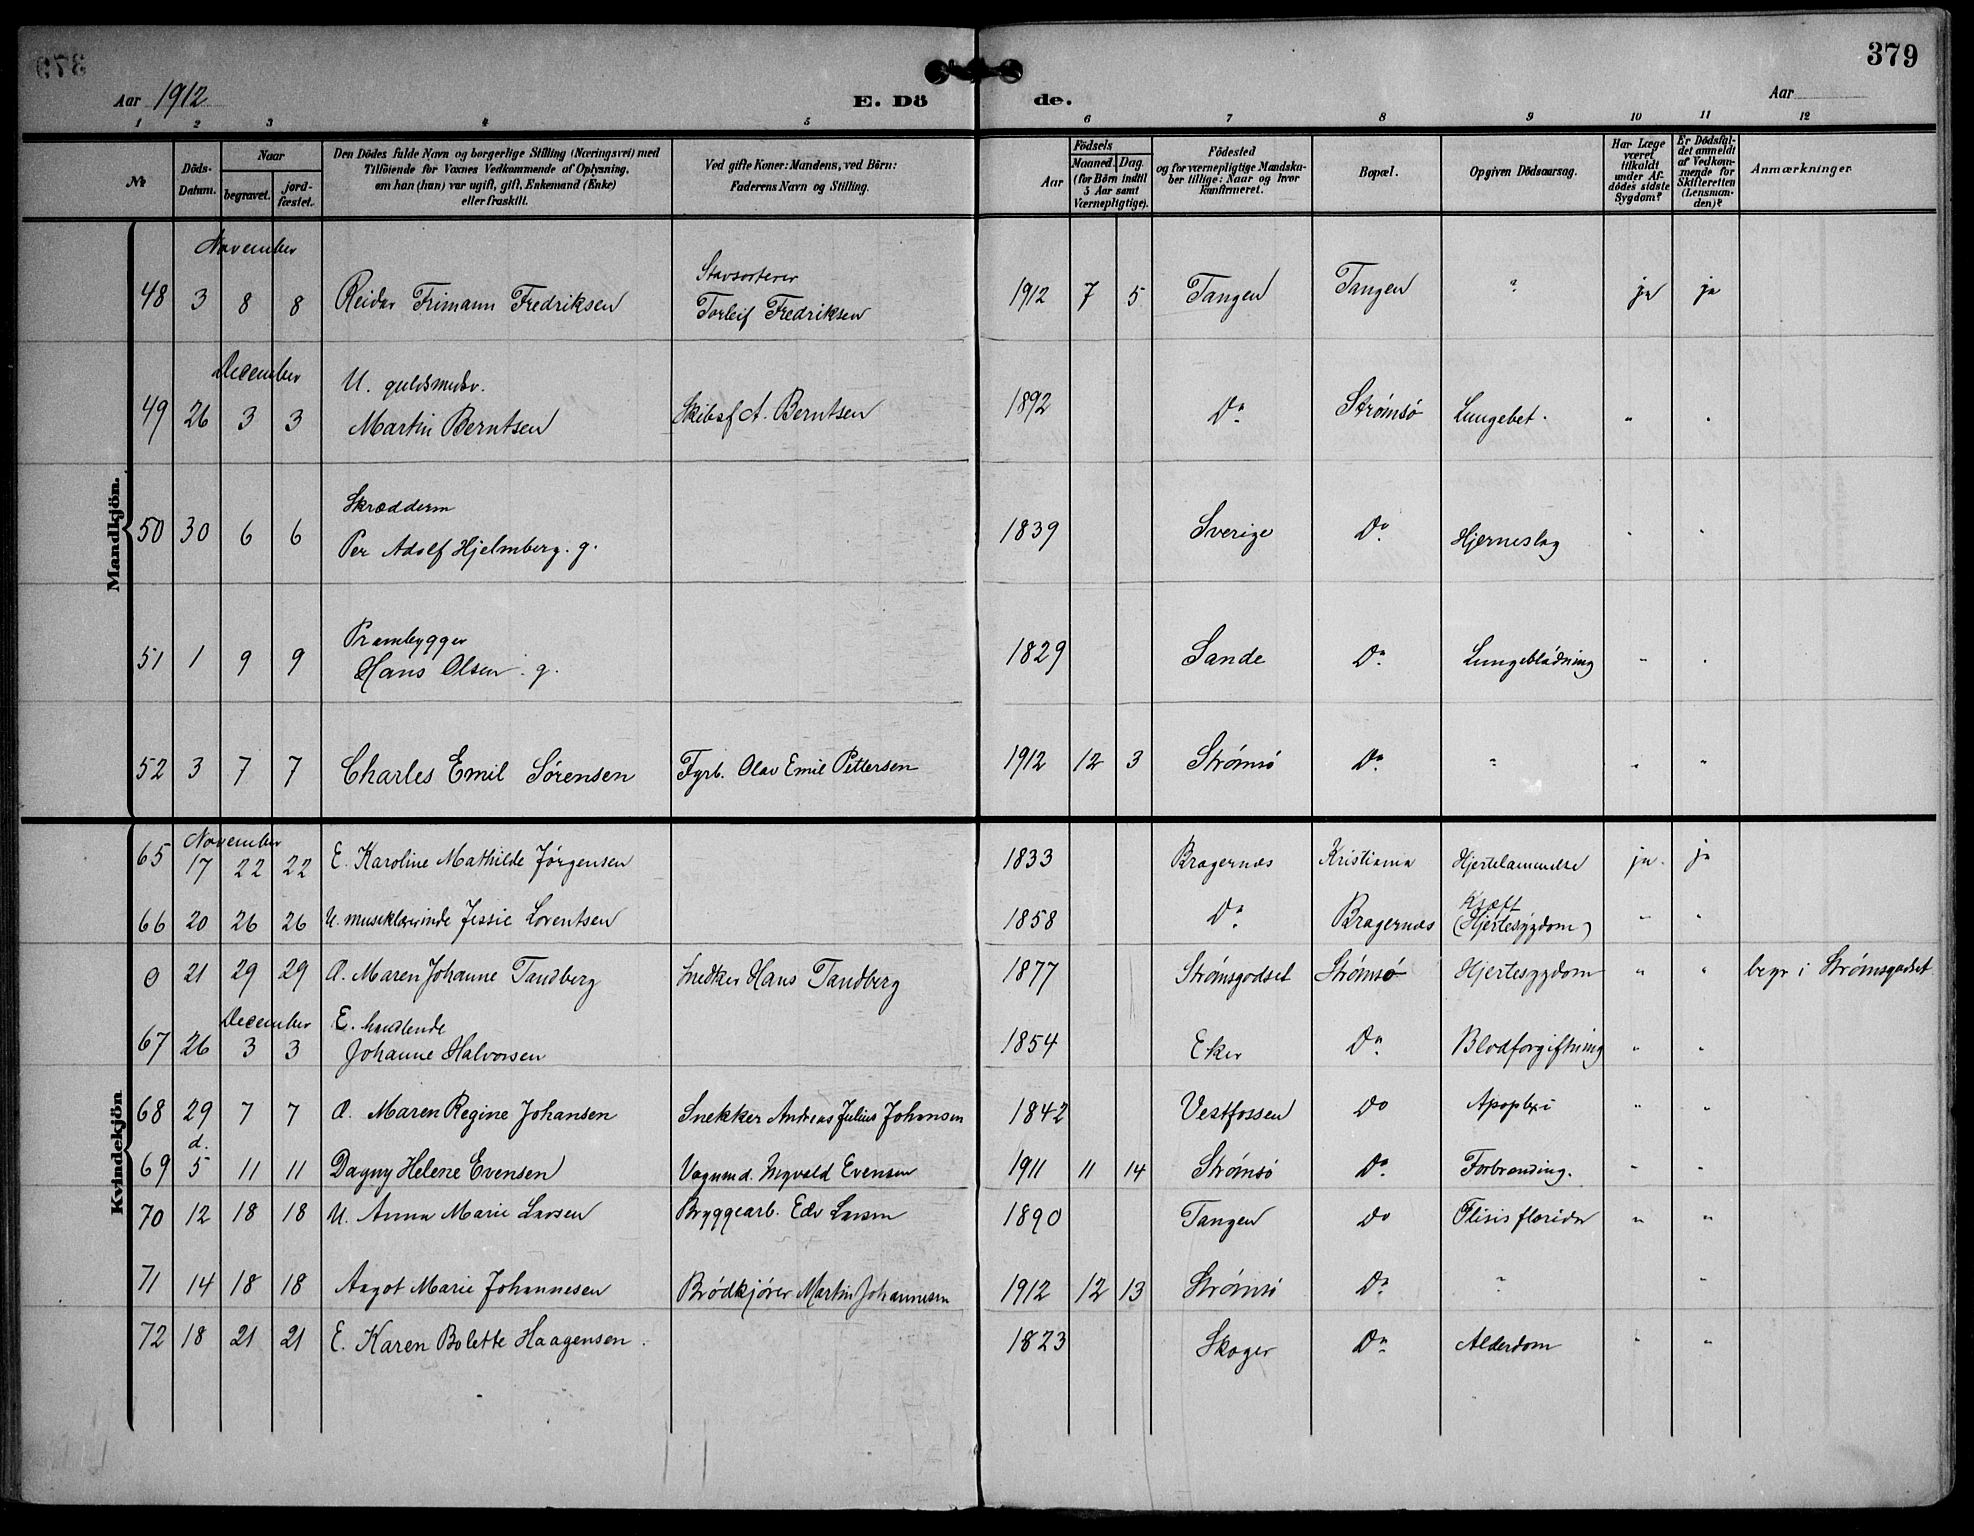 379
Aar 1912
E. Dö de.
Aar
1 2 3 4 5 6 7 8 9 10 11 12
№
Döds-
Datum.
Naar
begravet.
jord-
fæstet.
Den Dödes fulde Navn og borgerlige Stilling (Næringsvei) med
Tilföiende for Voxnes Vedkommende af Oplysning,
om han (hun) var ugift, gift, Enkemand (Enke)
eller fraskilt.
Ved gifte Koner: Mandens, ved Börn:
Faderens Navn og Stilling.
Födsels
Aar
Maaned. Dag.
(for Börn indtil
5 Aar samt
Værnepligtige).
Födested
og for værnepligtige Mandska-
ber tillige: Naar og hvor
Konfirmeret.
Bopæl.
Opgiven Dödsaarsag.
Har Læge
været
tilkaldt
under Af-
dödes sidste
Sygdom?
Er Dödsfal-
det anmeldt
af Vedkom-
mende for
Skifteretten
(Lensman-
den)?
Anmærkninger
Mandkjön.
November
Stavsorterer
48 3 8 8 Reidar Frimann Fredriksen Torleif Fredriksen 1912 7 5 Tangen Tangen " ja ja
December U. guldsmedsv.
49 26 3 3 Martin Berntsen Skibsf A. Berntsen 1892 Do Strømsø Lungebet. " "
Skrædderm
50 30 6 6 Per Adolf Hjelmberg. g. 1839 Sverige Do Hjerneslag " "
Prambygger
51 1 9 9 Hans Olsen. g. 1829 Sande Do Lungeblødning " "
52 3 7 7 Charles Emil Sörensen Fyrb. Olav Emil Pettersen 1912 12 3 Strømsø Do " " "
Kvindekjön
November
65 17 22 22 E. Karoline Mathilde Jörgensen 1833 Bragernæs Kristiania Hjertelammelse ja. ja
Kræft
66 20 26 26 U. musiklærerinde Jessie Lorentsen 1858 Do Bragernæs (Hjertesygdom) " "
0 21 29 29 G. Maren Johanne Tandberg Snedker Hans Tandberg 1877 Strømsgodset Strømsø Hjertesygdom " " begr i Strømsgodset
December E. handlende
67 26 3 3 Johanne Halvorsen 1854 Eker Do Blodforgiftning " "
68 29 7 7 G. Maren Regine Johansen Snekker Andreas Julius Johansen 1842 Vestfossen Do Apoplexi " "
d.
69 5 11 11 Dagny Helene Evensen Vognmd. Ingvald Evensen 1911 11 14 Strømsø Do Forbrænding. " "
70 12 18 18 U. Anna Marie Larsen Bryggearb. Edv Larsen 1890 Tangen Do Ftisis florida " "
71 14 18 18 Aagot Marie Johannesen Brödkjörer Martin Johannesen 1912 12 13 Strømsø Do " "
72 18 21 21 E. Karen Bolette Haagensen. 1823 Skoger Do Alderdom " "